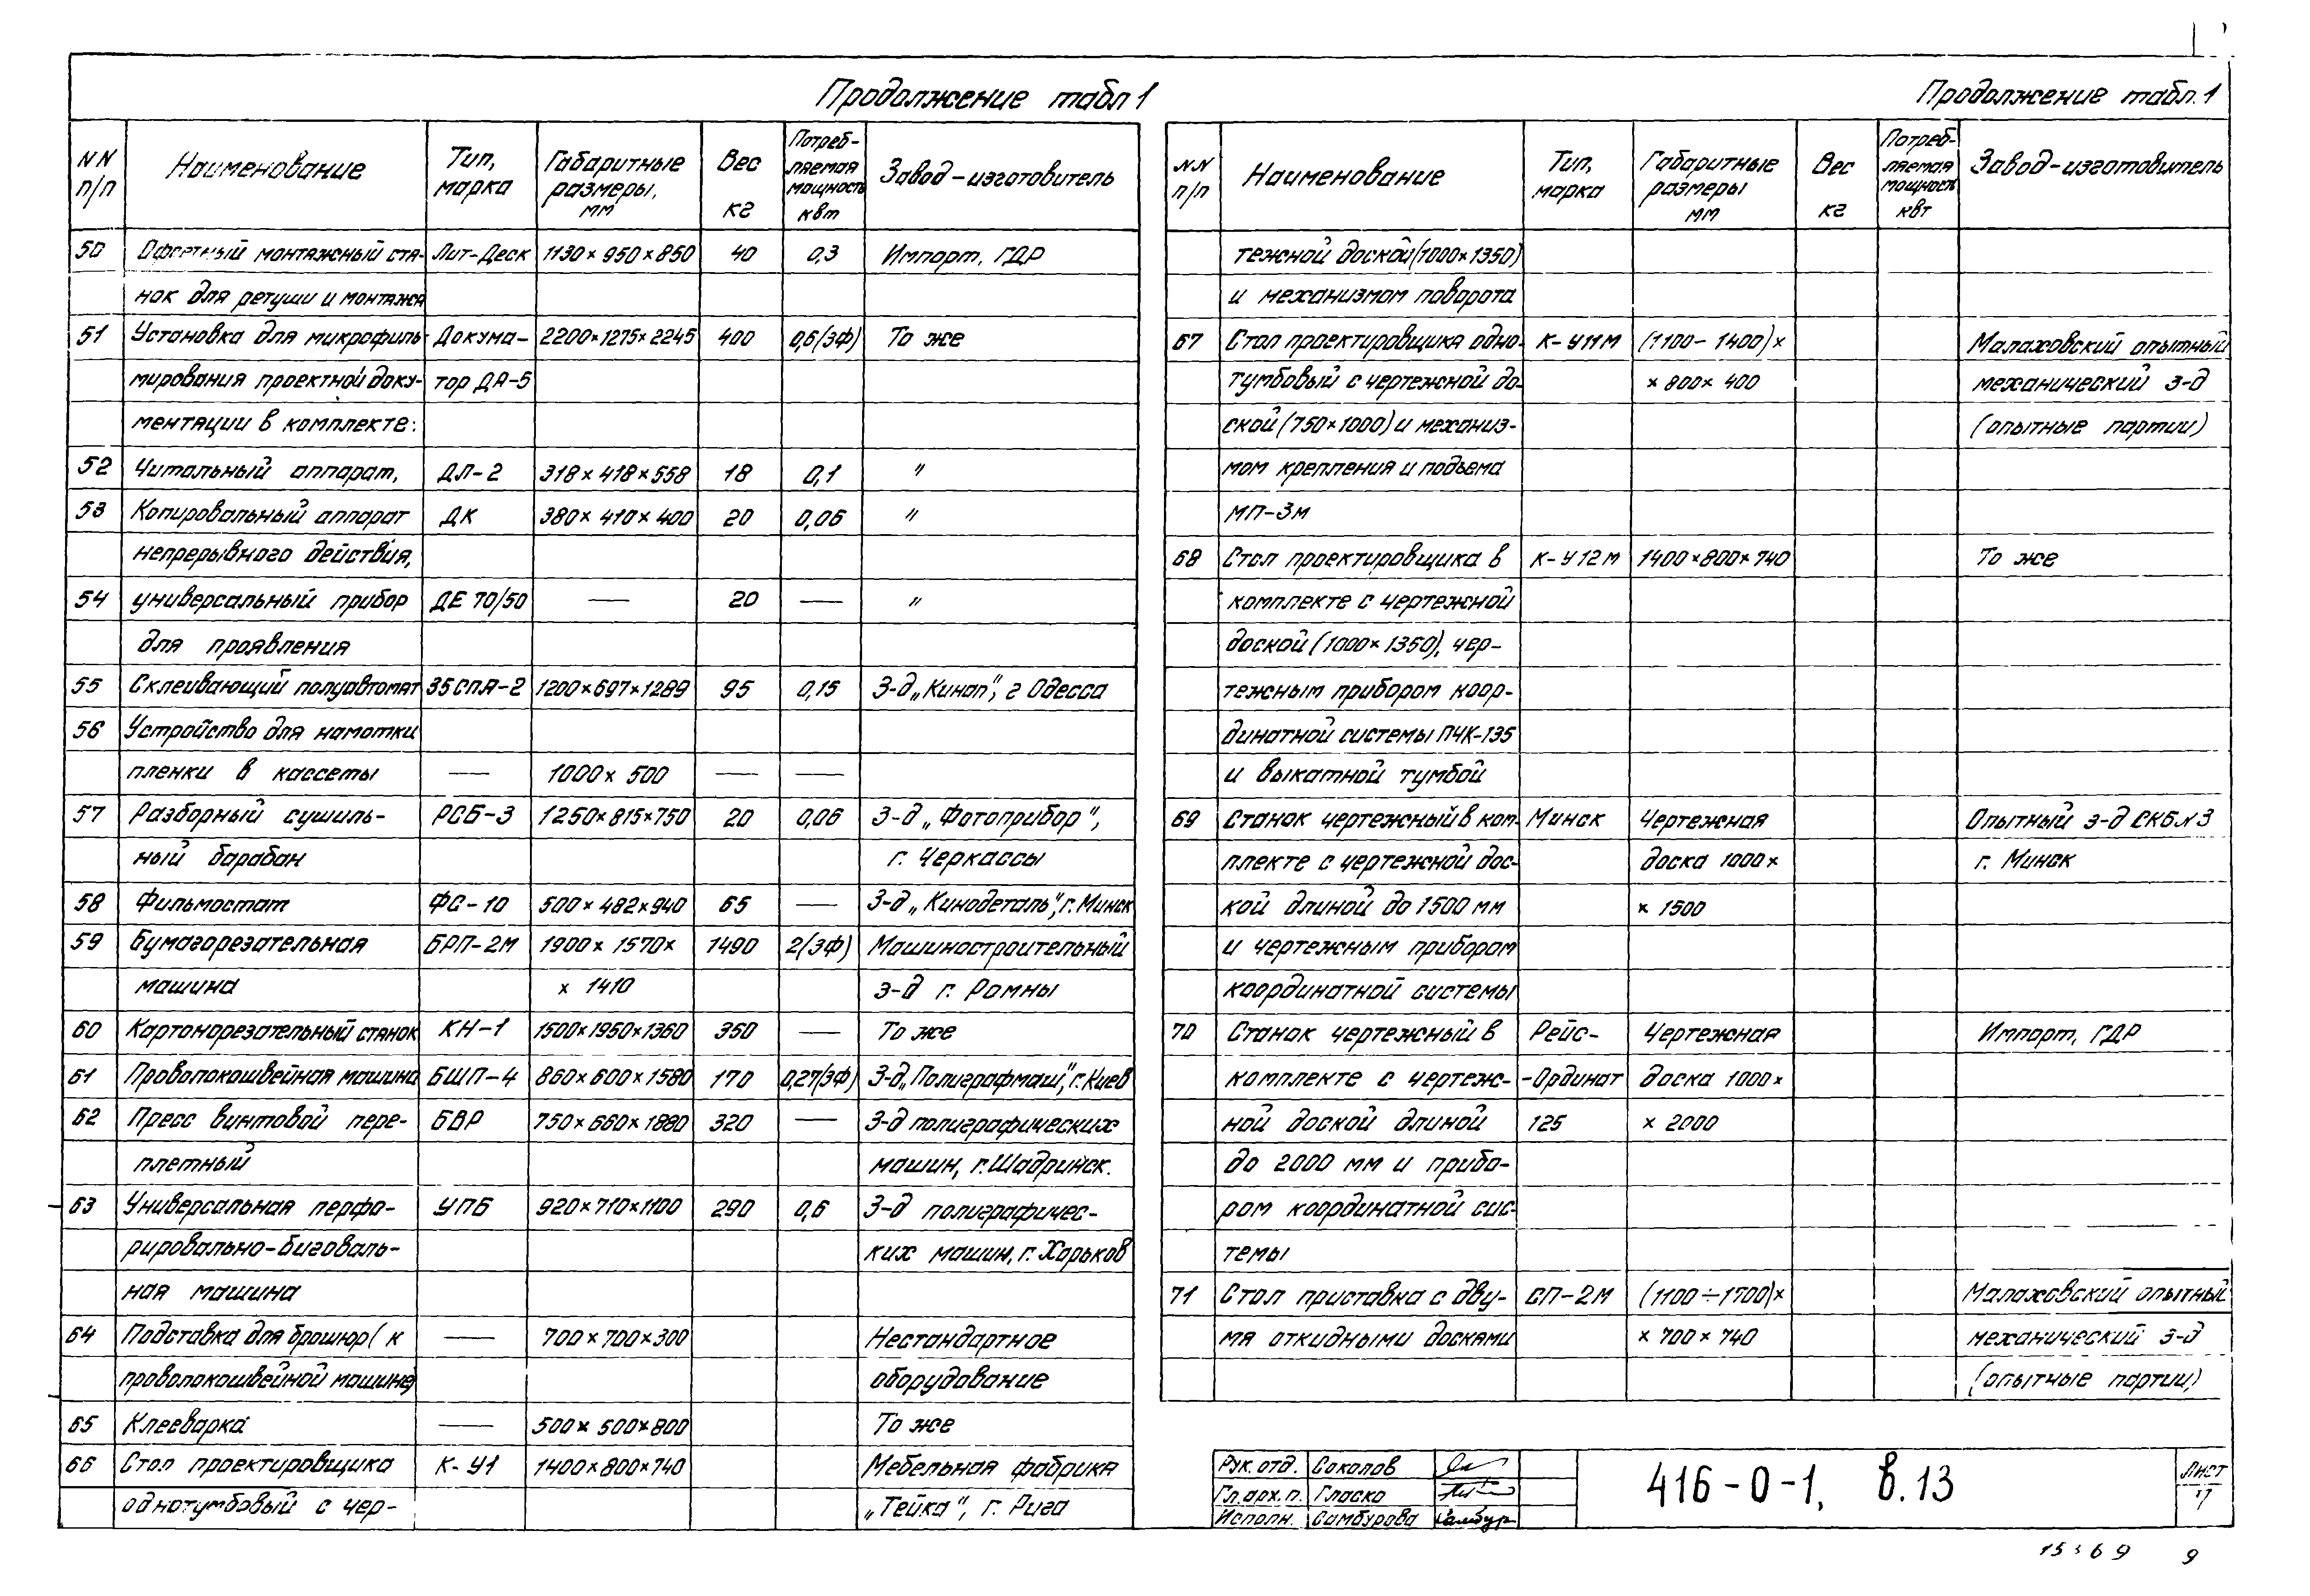 Продолжение табл 1
NN п/п | Наименование | Тип, марка | Габаритные размеры, мм | Вес кг | Потребляемая мощность квт | Завод-изготовитель
50 Офсетный монтажный ста- Лит-Деск 1130×950×850 40 0,3 Импорт, ГДР
нок для ретуши и монтажа
51 Установка для микрофиль- Докума- 2200×1275×2245 400 0,6(3ф) То же
мирования проектной доку- тор ДА-5
ментации в комплекте:
52 Читальный аппарат, ДЛ-2 318×418×558 18 0,1 "
53 Копировальный аппарат ДК 380×410×400 20 0,06 "
непрерывного действия,
54 универсальный прибор ДЕ 70/50 — 20 — "
для проявления
55 Склеивающий полуавтомат 35СПА-2 1200×697×1289 95 0,15 З-д „Кинап", г Одесса
56 Устройство для намотки
пленки в кассеты — 1000×500 — —
57 Разборный сушиль- РСБ-3 1250×815×750 20 0,06 З-д „Фотоприбор",
ный барабан г. Черкассы
58 Фильмостат ФС-10 500×482×940 65 — З-д „Кинодеталь", г. Минск
59 Бумагорезательная БРП-2М 1900×1570× 1490 2(3ф) Машиностроительный
машина ×1410 з-д г. Ромны
60 Картонорезательный станок КН-1 1500×1950×1360 350 — То же
61 Проволокошвейная машина БШП-4 860×600×1580 170 0,27(3ф) З-д „Полиграфмаш", г. Киев
62 Пресс винтовой пере- БВР 750×660×1880 320 — З-д полиграфических
плетный машин, г. Шадринск.
63 Универсальная перфо- УПБ 920×710×1100 290 0,6 З-д полиграфичес-
рировально-биговаль- ких машин, г. Харьков
ная машина
64 Подставка для брошюр (к — 700×700×300 Нестандартное
проволокошвейной машине) оборудование
65 Клееварка — 500×500×800 То же
66 Стол проектировщика К-У1 1400×800×740 Мебельная фабрика
однотумбовый с чер- „Тейка", г. Рига
Продолжение табл. 1
NN п/п | Наименование | Тип, марка | Габаритные размеры мм | Вес кг | Потребляемая мощность квт | Завод-изготовитель
тежной доской (1000×1350)
и механизмом поворота
67 Стол проектировщика одно- К-У11М (1100-1400)× Малаховский опытный
тумбовый с чертежной до- ×800×400 механический з-д
ской (750×1000) и механиз- (опытные партии)
мом крепления и подъема
МП-3м
68 Стол проектировщика в К-У12М 1400×800×740 То же
комплекте с чертежной
доской (1000×1350), чер-
тежным прибором коор-
динатной системы ПЧК-135
и выкатной тумбой
69 Станок чертежный в ком- Минск Чертежная Опытный з-д СКБ N3
плекте с чертежной дос- доска 1000× г. Минск
кой длиной до 1500 мм ×1500
и чертежным прибором
координатной системы
70 Станок чертежный в Рейс- Чертежная Импорт, ГДР
комплекте с чертеж- -Ординат доска 1000×
ной доской длиной 125 ×2000
до 2000 мм и прибо-
ром координатной сис-
темы
71 Стол приставка с дву- СП-2М (1100÷1700)× Малаховский опытный
мя откидными досками ×700×740 механический з-д
(опытные партии)
Рук. отд. Соколов
Гл. арх. п. Гласко
Исполн. Самбурова
416-0-1, в.13
Лист
7
9